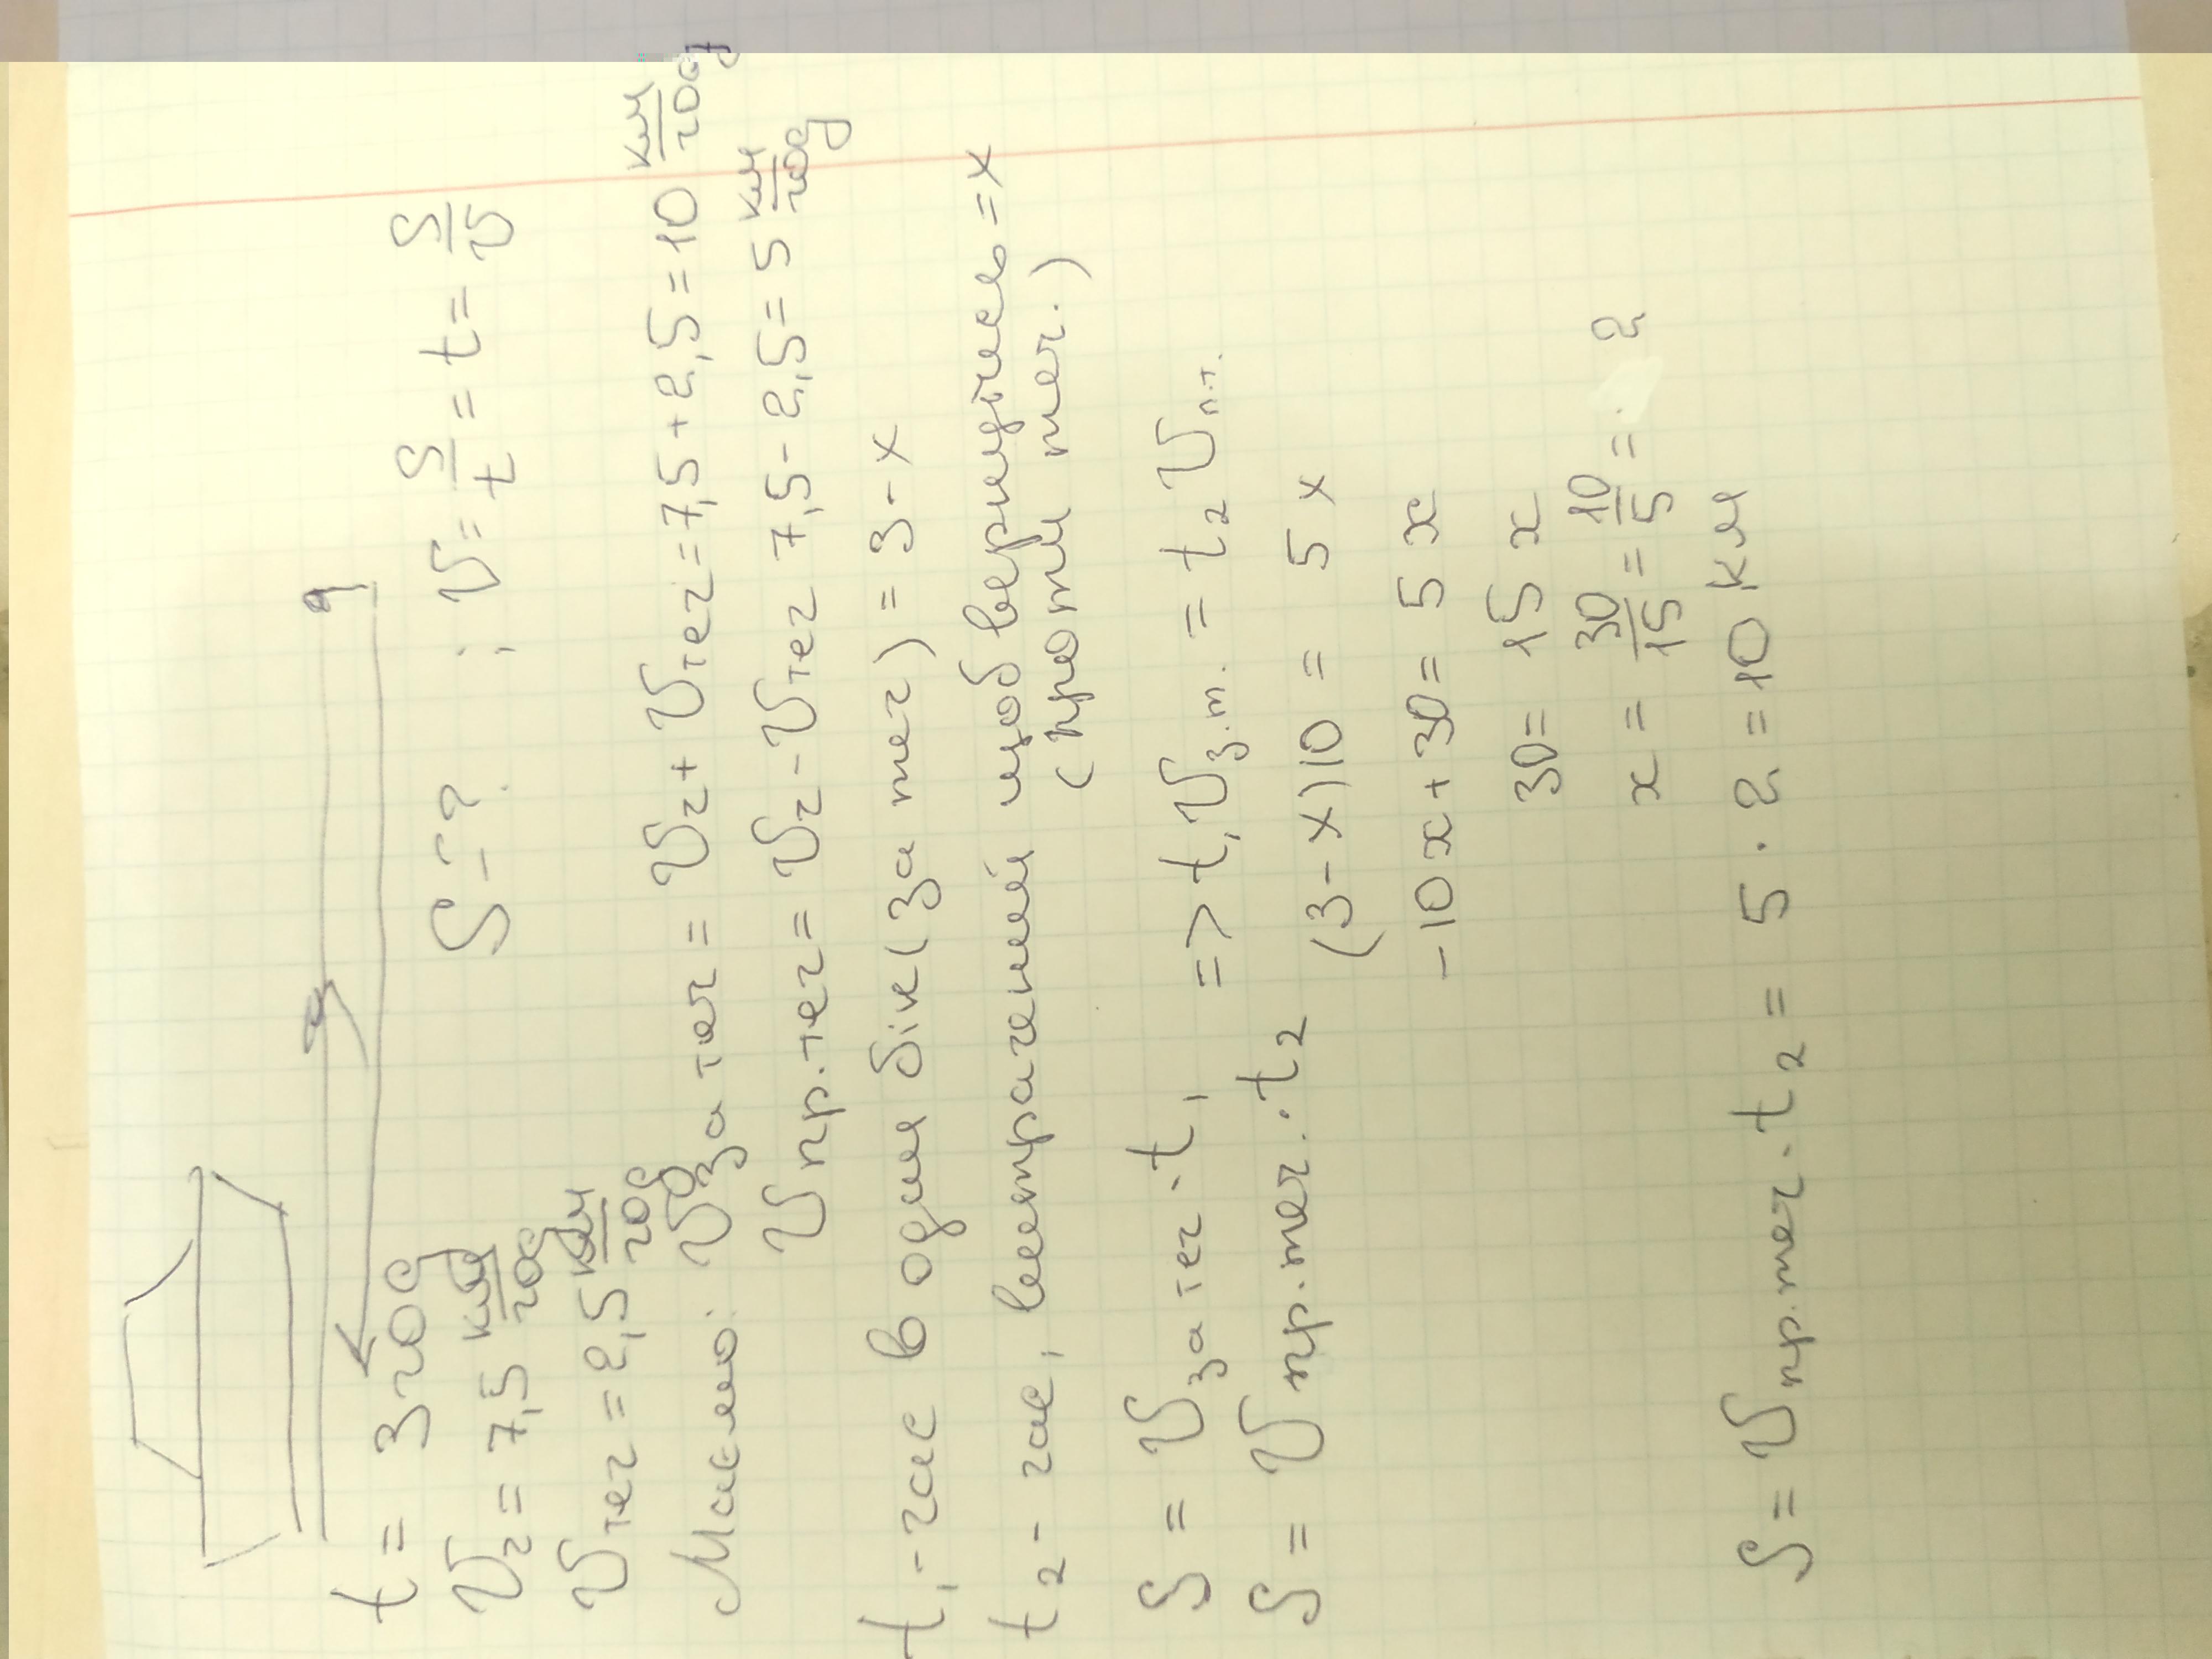 S - ? ; V = S/t = t = S/V
t = 3 год
Vч = 7,5 км/год
Vтеч = 2,5 км/год
Маємо: Vза теч = Vч + Vтеч = 7,5 + 2,5 = 10 км/год
Vпр. теч = Vч - Vтеч 7,5 - 2,5 = 5 км/год
t1 - час в один бік (за теч) = 3 - x
t2 - час, витрачений щоб вернутись = x
(проти теч.)
S = Vза теч · t1 => t1 Vз.т. = t2 Vп.т.
S = Vпр. теч. · t2 (3 - x)10 = 5x
-10x + 30 = 5x
30 = 15x
x = 30/15 = 10/5 = 2
S = Vпр. теч · t2 = 5 · 2 = 10 км